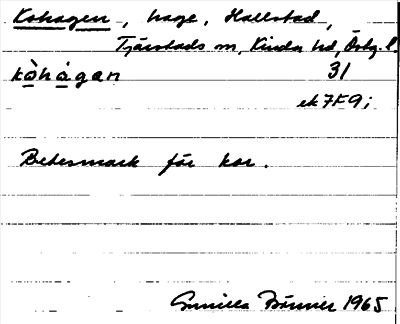 Kohagen, hage, Hallstad,
Tjärstads sn, Kinda hd, Östg. l.
kòhágan 31
ek 7F9;
Betesmark för kor.
Gunilla 1965